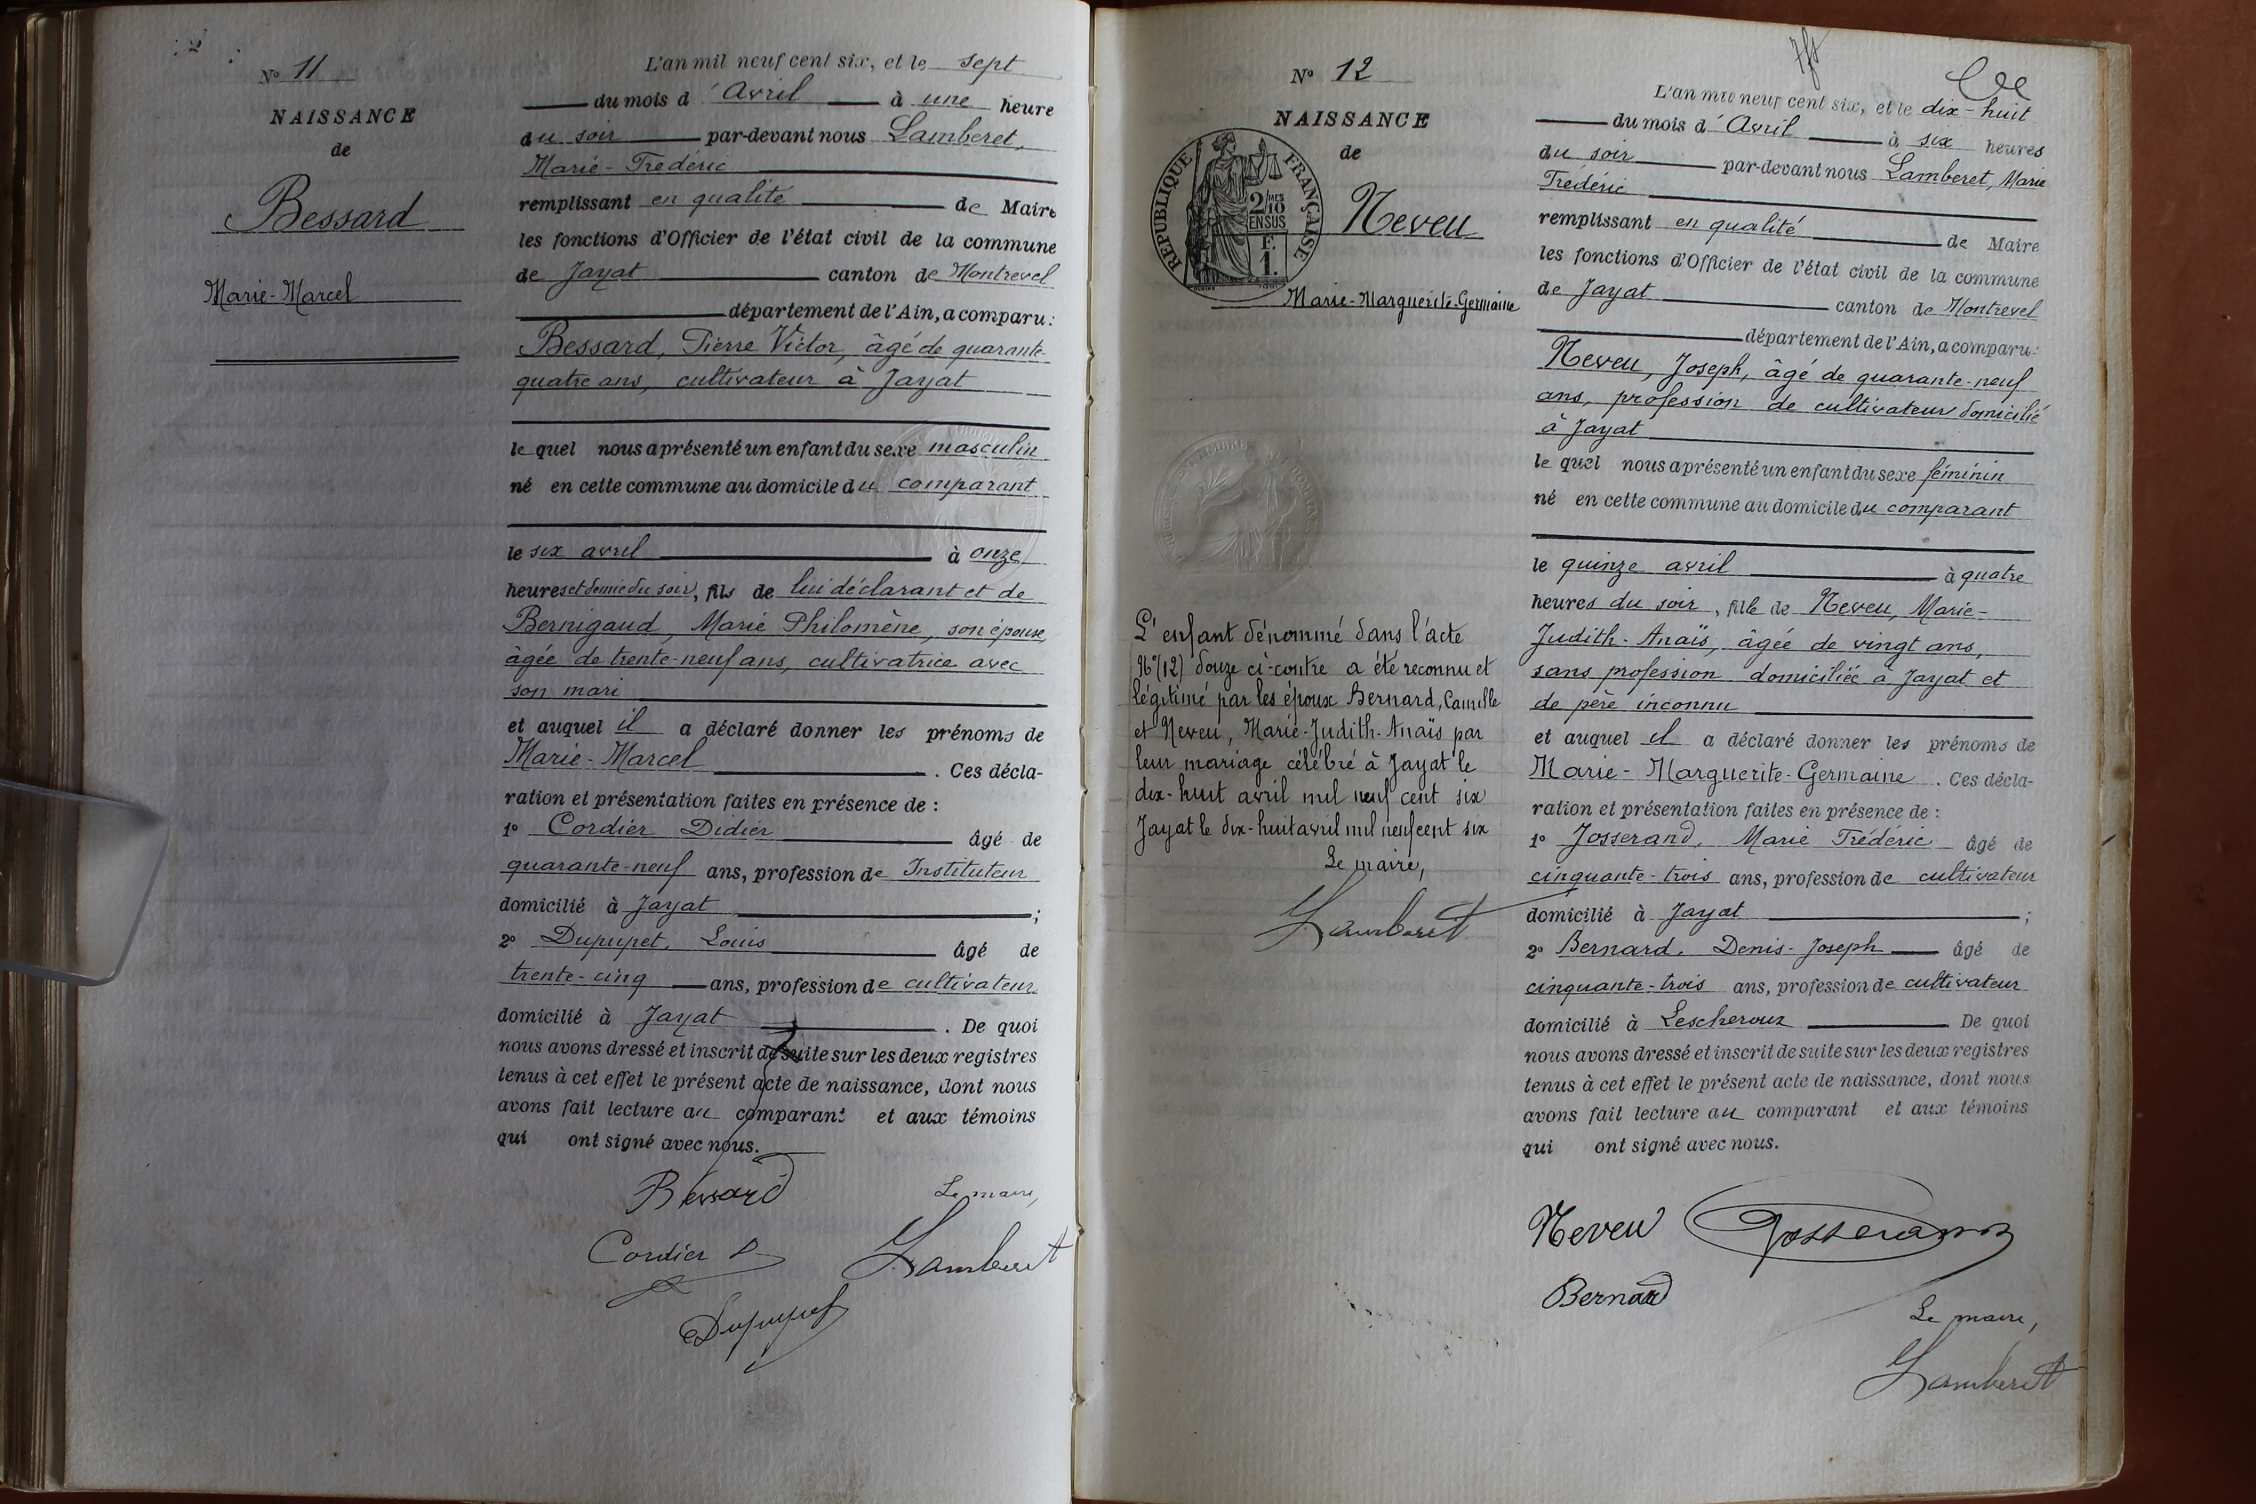 N° 11
NAISSANCE
de
Bessard
Marie-Marcel
L'an mil neuf cent six, et le sept
du mois d'Avril à une heure
du soir par-devant nous Lamberet,
Marie-Frédéric
remplissant en qualité de Maire
les fonctions d'Officier de l'état civil de la commune
de Jayat canton de Montrevel
département de l'Ain, a comparu:
Bessard, Pierre Victor, âgé de quarante-
quatre ans, cultivateur à Jayat
le quel nous a présenté un enfant du sexe masculin
né en cette commune au domicile du comparant
le six avril à onze
heures et demie du soir, fils de lui déclarant et de
Bernigaud, Marie Philomène, son épouse,
âgée de trente-neuf ans, cultivatrice avec
son mari
et auquel il a déclaré donner les prénoms de
Marie-Marcel . Ces décla-
ration et présentation faites en présence de :
1° Cordier Didier âgé de
quarante-neuf ans, profession de Instituteur
domicilié à Jayat ;
2° Dupupet, Louis âgé de
trente-cinq ans, profession de cultivateur
domicilié à Jayat . De quoi
nous avons dressé et inscrit de suite sur les deux registres
tenus à cet effet le présent acte de naissance, dont nous
avons fait lecture au comparant et aux témoins
qui ont signé avec nous.
Bessard Le maire,
Cordier D Lamberet
Dupupet
N° 12
NAISSANCE
de
RÉPUBLIQUE FRANÇAISE
2/10 EN SUS
F.
1.
Neveu
Marie-Marguerite-Germaine
L'enfant dénommé dans l'acte
N°(12) douze ci-contre a été reconnu et
légitimé par les époux Bernard, Camille
et Neveu, Marie-Judith-Anaïs par
leur mariage célébré à Jayat le
dix-huit avril mil neuf cent six
Jayat le dix-huit avril mil neuf cent six
Le maire,
Lamberet
L'an mil neuf cent six, et le dix-huit
du mois d'Avril à six heures
du soir par-devant nous Lamberet, Marie
Frédéric
remplissant en qualité de Maire
les fonctions d'Officier de l'état civil de la commune
de Jayat canton de Montrevel
département de l'Ain, a comparu:
Neveu, Joseph, âgé de quarante-neuf
ans, profession de cultivateur domicilié
à Jayat
le quel nous a présenté un enfant du sexe féminin
né en cette commune au domicile du comparant
le quinze avril à quatre
heures du soir, fille de Neveu, Marie-
Judith-Anaïs, âgée de vingt ans,
sans profession domiciliée à Jayat et
de père inconnu
et auquel il a déclaré donner les prénoms de
Marie-Marguerite-Germaine . Ces décla-
ration et présentation faites en présence de :
1° Josserand, Marie Frédéric âgé de
cinquante-trois ans, profession de cultivateur
domicilié à Jayat ;
2° Bernard, Denis-Joseph âgé de
cinquante-trois ans, profession de cultivateur
domicilié à Lescheroux De quoi
nous avons dressé et inscrit de suite sur les deux registres
tenus à cet effet le présent acte de naissance, dont nous
avons fait lecture au comparant et aux témoins
qui ont signé avec nous.
Neveu Josserand
Bernard
Le maire,
Lamberet